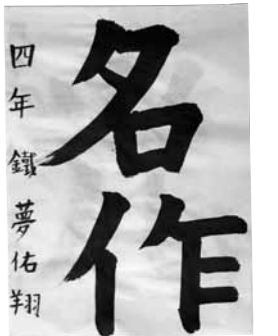 名作
四年 鐵 夢佑翔